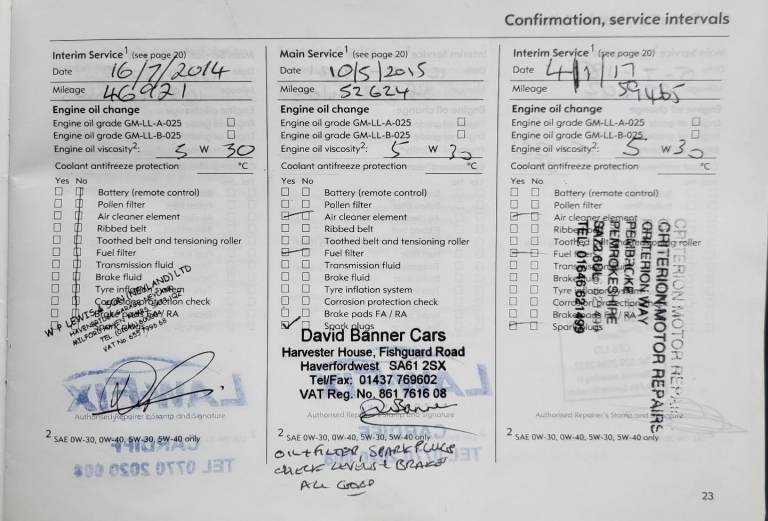 Confirmation, service intervals
Interim Service¹ (see page 20)
Date 16/7/2014
Mileage 46921
Engine oil change
Engine oil grade GM-LL-A-025
Engine oil grade GM-LL-B-025
Engine oil viscosity²: 5 W 30
Coolant antifreeze protection °C
Yes No
Battery (remote control)
Pollen filter
Air cleaner element
Ribbed belt
Toothed belt and tensioning roller
Fuel filter
Transmission fluid
Brake fluid
Tyre inflation system
Corrosion protection check
Brake pads FA / RA
W P LEWIS & SON (NEYLAND) LTD
Authorised Repairer's Stamp and Signature
² SAE 0W-30, 0W-40, 5W-30, 5W-40 only
CARDIFF
TEL 0770 2020 908
Main Service¹ (see page 20)
Date 10/5/2015
Mileage 52624
Engine oil change
Engine oil grade GM-LL-A-025
Engine oil grade GM-LL-B-025
Engine oil viscosity²: 5 W 30
Coolant antifreeze protection °C
Yes No
Battery (remote control)
Pollen filter
Air cleaner element
Ribbed belt
Toothed belt and tensioning roller
Fuel filter
Transmission fluid
Brake fluid
Tyre inflation system
Corrosion protection check
Brake pads FA / RA
Spark plugs
David Banner Cars
Harvester House, Fishguard Road
Haverfordwest SA61 2SX
Tel/Fax: 01437 769602
VAT Reg. No. 861 7616 08
Authorised Repairer's Stamp and Signature
² SAE 0W-30, 0W-40, 5W-30, 5W-40 only
OIL + FILTER, SPARK PLUGS
CHECK LEVELS + BRAKES
ALL GOOD
Interim Service¹ (see page 20)
Date 4/1/17
Mileage 59465
Engine oil change
Engine oil grade GM-LL-A-025
Engine oil grade GM-LL-B-025
Engine oil viscosity²: 5 W 30
Coolant antifreeze protection °C
Yes No
Battery (remote control)
Pollen filter
Air cleaner element
Ribbed belt
Toothed belt and tensioning roller
Fuel filter
Brake fluid
Tyre inflation system
Corrosion protection
Brake pads FA / RA
Spark plugs
CRITERION MOTOR REPAIRS
CRITERION MOTOR REPAIRS
CRITERION WAY
PEMBROKE
PEMBROKESHIRE
TEL: 01646 621499
Authorised Repairer's Stamp and
² SAE 0W-30, 0W-40, 5W-30, 5W-40 only
23